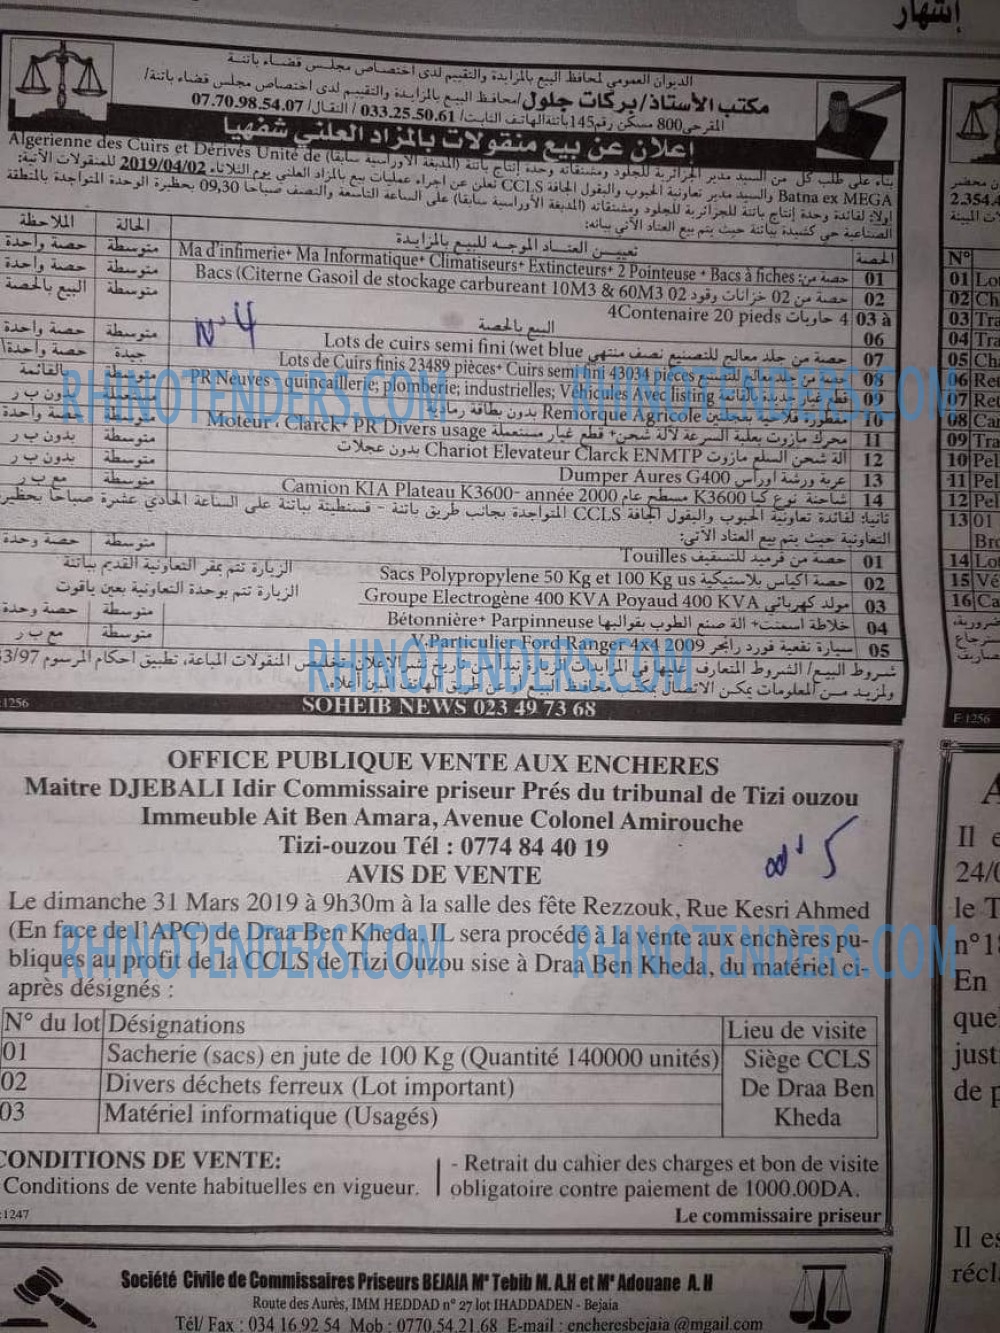 إشهار
الديوان العمومي لمحافظ البيع بالمزايدة والتقييم لدى اختصاص مجلس قضاء باتنة
مكتب الأستاذ/بركات جلول/محافظ البيع بالمزايدة والتقييم لدى اختصاص مجلس قضاء باتنة/
المقر حي 800 مسكن رقم 145 باتنة الهاتف الثابت/ 033.25.50.61 / النقال/ 07.70.98.54.07
إعلان عن بيع منقولات بالمزاد العلني شفهيا
بناء على طلب كل من السيد مدير الجزائرية للجلود ومشتقاته وحدة إنتاج باتنة (المدبغة الأوراسية سابقا) Algerienne des Cuirs et Dérivés Unité de
Batna ex MEGA والسيد مدير تعاونية الحبوب والبقول الجافة CCLS نعلن عن اجراء عمليات بيع بالمزاد العلني يوم الثلاثاء 2019/04/02 للمنقولات الآتية:
اولا: لفائدة وحدة إنتاج باتنة للجزائرية للجلود ومشتقاته (المدبغة الأوراسية سابقا) على الساعة التاسعة والنصف صباحا 09,30 بحظيرة الوحدة المتواجدة بالمنطقة
الصناعية حي كشيدة بباتنة حيث يتم بيع العتاد الآتي بيانه:
الحصة تعيين العتاد الموجه للبيع بالمزايدة الحالة الملاحظة
01 حصة من: Ma d'infimerie+ Ma Informatique+ Climatiseurs+ Extincteurs+ 2 Pointeuse + Bacs à fiches متوسطة حصة واحدة
02 حصة من 02 خزانات وقود Bacs (Citerne Gasoil de stockage carbureant 10M3 & 60M3 02 متوسطة حصة واحدة
03 à 4 حاويات 4Contenaire 20 pieds متوسطة البيع بالحصة
06 البيع بالحصة
N° 4
07 حصة من جلد معالج للتصنيع نصف منتهي Lots de cuirs semi fini (wet blue متوسطة حصة واحدة
08 حصة من جلد معالج للتصنيع Lots de Cuirs finis 23489 pièces+ Cuirs semi fini 43034 pièces جيدة حصة واحدة
09 قطع غيار جديدة بالقائمة PR Neuves : quincaillerie; plomberie; industrielles; Véhicules Avec listing متوسطة بالقائمة
10 مقطورة فلاحية بعجلتين Remorque Agricole بدون بطاقة رمادية مستعملة بدون ب ر
11 محرك مازوت بعلبة السرعة لآلة شحن+ قطع غيار مستعملة Moteur : Clarck+ PR Divers usage متوسطة حصة واحدة
12 آلة شحن السلع مازوت Chariot Elevateur Clarck ENMTP بدون عجلات متوسطة بدون ب ر
13 عربة ورشة اوراس Dumper Aures G400 متوسطة بدون ب ر
14 شاحنة نوع كيا K3600 مسطح عام 2000 Camion KIA Plateau K3600- année متوسطة مع ب ر
ثانيا: لفائدة تعاونية الحبوب والبقول الجافة CCLS المتواجدة بجانب طريق باتنة - قسنطينة بباتنة على الساعة الحادي عشرة صباحا بحظيرة
التعاونية حيث يتم بيع العتاد الآتي:
01 حصة من قرميد للتسقيف Touilles متوسطة حصة واحدة
02 حصة اكياس بلاستيكية Sacs Polypropylene 50 Kg et 100 Kg us الزيارة تتم بمقر التعاونية القديم بباتنة
03 مولد كهربائي Groupe Electrogène 400 KVA Poyaud 400 KVA الزيارة تتم بوحدة التعاونية بعين ياقوت
04 خلاطة اسمنت+ آلة صنع الطوب بقوالبها Bétonnière+ Parpinneuse متوسطة حصة واحدة
05 سيارة نفعية فورد رانجر V.Particulier Ford Ranger 4x4 2009 متوسطة مع ب ر
شروط البيع/ الشروط المتعارف عليها في المزايدات الزيارة تبدأ من تاريخ نشر الإعلان تخليص المنقولات المباعة، تطبيق احكام المرسوم
ولمزيد من المعلومات يمكن الاتصال بمكتب محافظ البيع أو عن طريق الهاتف المبين أعلاه.
SOHEIB NEWS 023 49 73 68
1256
OFFICE PUBLIQUE VENTE AUX ENCHERES
Maitre DJEBALI Idir Commissaire priseur Prés du tribunal de Tizi ouzou
Immeuble Ait Ben Amara, Avenue Colonel Amirouche
Tizi-ouzou Tél : 0774 84 40 19
AVIS DE VENTE
N° 5
Le dimanche 31 Mars 2019 à 9h30m à la salle des fête Rezzouk, Rue Kesri Ahmed
(En face de l'APC) de Draa Ben Kheda, IL sera procédé à la vente aux enchères pu-
bliques au profit de la CCLS de Tizi Ouzou sise à Draa Ben Kheda, du matériel ci-
après désignés :
N° du lot Désignations Lieu de visite
01 Sacherie (sacs) en jute de 100 Kg (Quantité 140000 unités) Siège CCLS
02 Divers déchets ferreux (Lot important) De Draa Ben
03 Matériel informatique (Usagés) Kheda
CONDITIONS DE VENTE:
Conditions de vente habituelles en vigueur.
- Retrait du cahier des charges et bon de visite
obligatoire contre paiement de 1000.00DA.
Le commissaire priseur
:1247
Société Civile de Commissaires Priseurs BEJAIA Me Tebib M. A.H et Me Adouane A. H
Route des Aurès, IMM HEDDAD n° 27 lot IHADDADEN - Bejaia
Tél/ Fax : 034 16.92 54 Mob : 0770.54.21.68 E-mail : encheresbejaia @mgail.com
2.354.4
N°
01 Lot
02 Ch
03 Tra
04 Tra
05 Cha
06 Re
07 Re
08 Car
09 Tra
10 Pel
11 Pel
12 Pel
13 01
Bro
14 Lo
15 Vé
16 Ca
F 1256
A
Il e
24/0
le T
n°1
En
que
just
de p
Il es
récl
RHINOTENDERS.COM
RHINOTENDERS.COM
RHINOTENDERS.COM
RHINOTENDERS.COM
RHINOTENDERS.COM